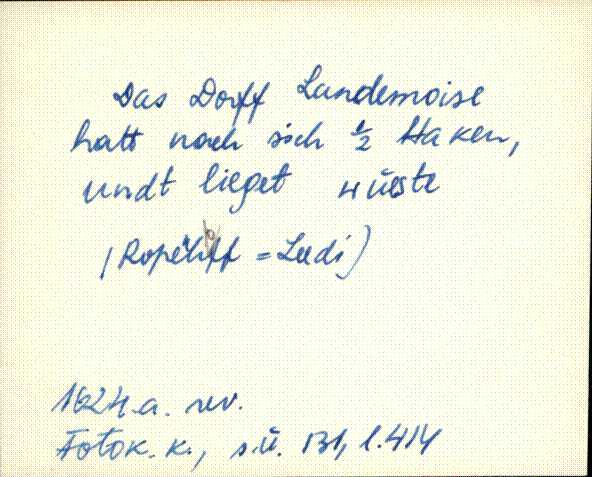 Das Dorff Landemoise
hatt noch sich ½ Haken,
undt lieget wüste
= Leedi)
1624. a. rev.
Fotok. k., s.ü. 131, l. 414